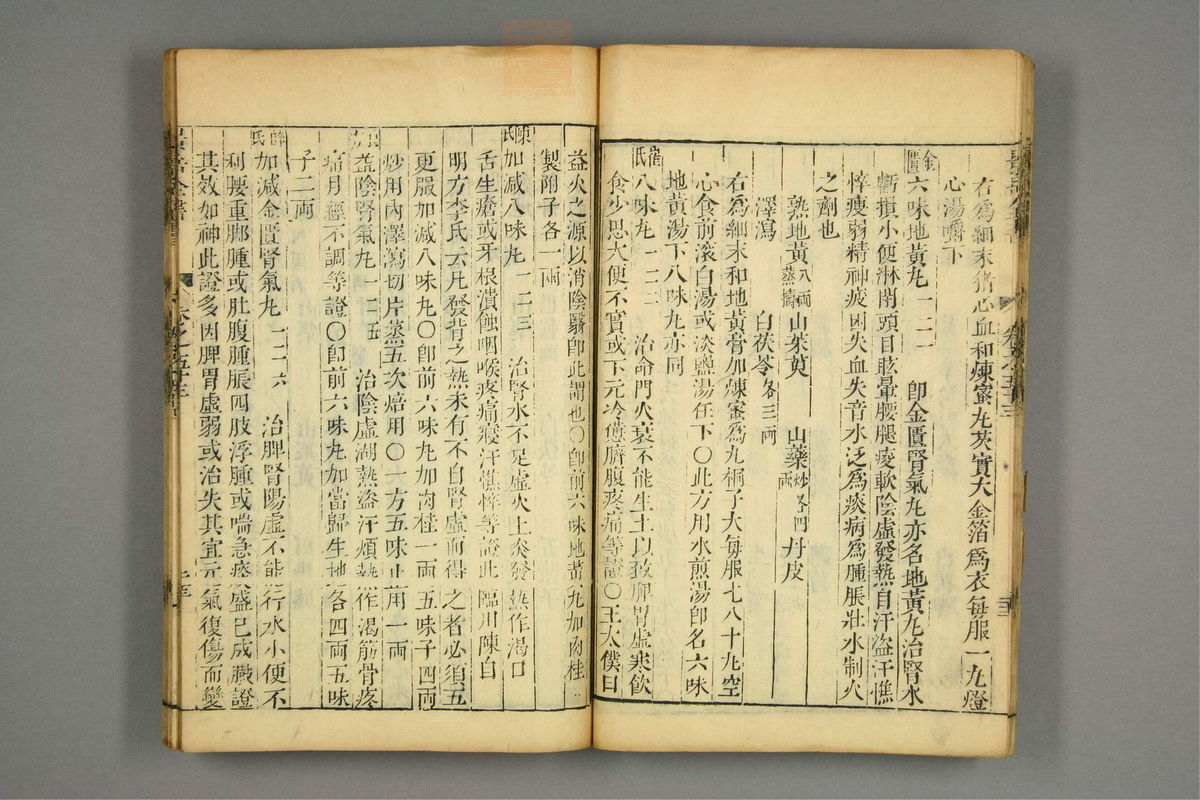 右為細末猪心血和煉蜜丸芡實大金箔為衣每服一丸燈
心湯嚼下
金匱六味地黃丸 一二一 卽金匱腎氣丸亦名地黃丸治腎水
虧損小便淋閉頭目眩暈腰腿痠軟陰虛發熱自汗盜汗憔
悴瘦弱精神疲困失血失音水泛為痰病為腫脹壯水制火
之劑也
熟地黃八兩蒸擣 山茱萸 山藥炒各四兩 丹皮
澤瀉 白茯苓各三兩
右為細末和地黃膏加煉蜜為丸桐子大每服七八十丸空
心食前滾白湯或淡鹽湯任下〇此方用水煎湯卽名六味
地黃湯下八味丸亦同
崔氏八味丸 一二二 治命門火衰不能生土以致脾胃虛寒飲
食少思大便不實或下元冷憊臍腹疼痛等證〇王太僕曰
益火之源以消陰翳卽此謂也〇卽前六味地黃丸加肉桂
製附子各一兩
陳氏加減八味丸 一二三 治腎水不足虛火上炎發熱作渴口
舌生瘡或牙根潰蝕咽喉疼痛寢汗憔悴等證此臨川陳自
明方李氏云凡發背之熱未有不自腎虛而得之者必須五
更服加減八味丸〇卽前六味丸加肉桂一兩五味子四兩
炒用內澤瀉切片蒸五次焙用〇一方五味止用一兩
益陰腎氣丸 一二五 治陰虛潮熱盜汗煩熱作渴筋骨疼
痛月經不調等證〇卽前六味丸加當歸生地各四兩五味
子二兩
薛氏加減金匱腎氣丸 一二六 治脾腎陽虛不能行水小便不
利腰重脚腫或肚腹腫脹四肢浮腫或喘急痰盛已成臌證
其效如神此證多因脾胃虛弱或治失其宜元氣復傷而變